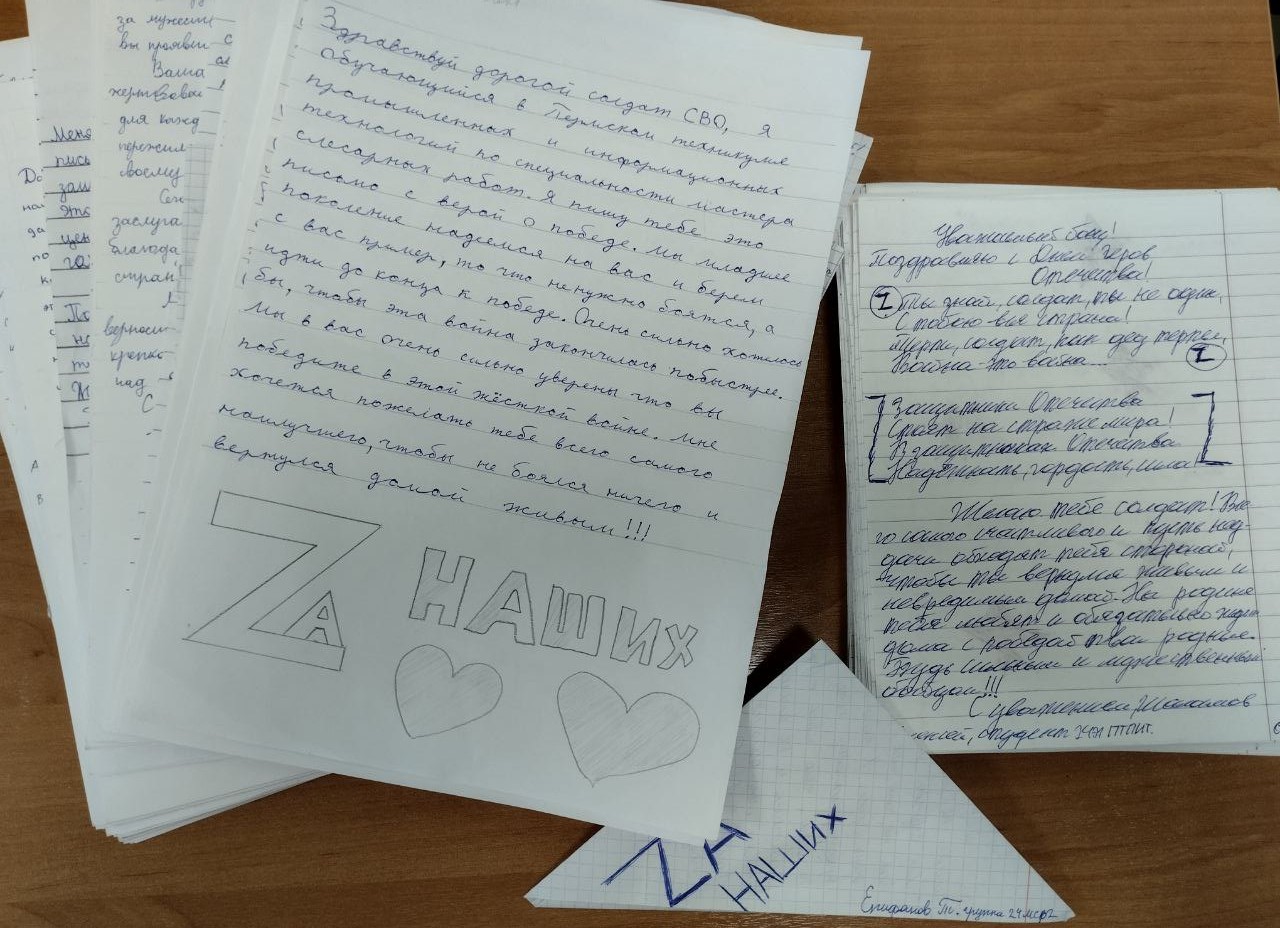 за мужест
вы прояви
Ваша
жертвовал
для кажд
пережил
своему
Сего
заслуга
благода
стран
верност
крепко
над
С
Меня
пись
защ
это
цен
По
на
Здравствуй дорогой солдат СВО, я
обучающийся в Пермском техникуме
промышленных и информационных
технологий по специальности мастера
слесарных работ. Я пишу тебе это
письмо с верой о победе. Мы младшее
поколение надеемся на вас и берем
с вас пример, то что не нужно боятся, а
идти до конца к победе. Очень сильно хотелось
бы, чтобы эта война закончилась побыстрее.
Мы в вас очень сильно уверены что вы
победите в этой жёсткой войне. Мне
хочется пожелать тебе всего самого
наилучшего, чтобы не боялся ничего и
вертулся домой живым!!!
ZA НАШИХ
Уважаемый боец!
Поздравляю с Днём Героев
Отечества!
Z Ты знай, солдат, ты не один,
С тобою вся страна!
Терпи, солдат, как дед терпел
Война - это война... Z
Защитники Отечества
Стоят на страже мира!
В защитниках Отечества
Надёжность, гордость, сила
Желаю тебе солдат! Все
го самого счастливого и пусть
дачи обходят тебя стороной,
чтобы ты вернулся живым и
невредимым домой. На родине
тебя любят и обязательно ждут
дома с победой твои родные.
Будь сильным и мужественным
бойцом!!!
С уважением,
студент ПТПИТ.
ZA
НАШИХ
Епифанов Ти. группа 24